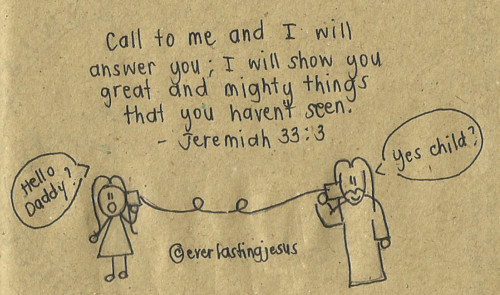 Call to me and I will
answer you; I will show you
great and mighty things
that you haven't seen.
- Jeremiah 33:3
Hello
Daddy?
Yes child?
@everlastingjesus